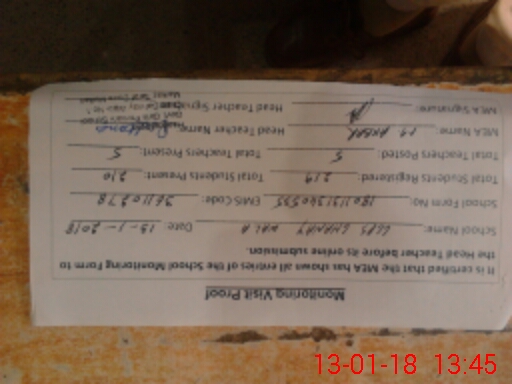 Monitoring Visit Proof
It is certified that the MEA has shown all entries of the School Monitoring Form to
the Head Teacher before its online submission.
School Name: GGPS Date: 13-1-2018
School Form No: EMIS Code: 36110278
Total Students Registered: 219 Total Students Present: 210
Total Teachers Posted: 5 Total Teachers Present: 5
MEA Name: Head Teacher Name:
MEA Signature: Head Teacher Signature:
13-01-18 13:45